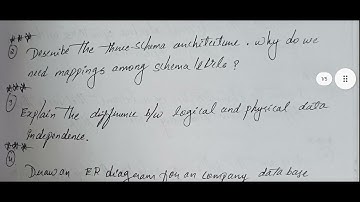 ***
② Describe the three-schema architecture. Why do we
need mappings among schema levels?
***
③ Explain the difference b/w logical and physical data
independence.
***
④ Draw an ER diagram for an company database